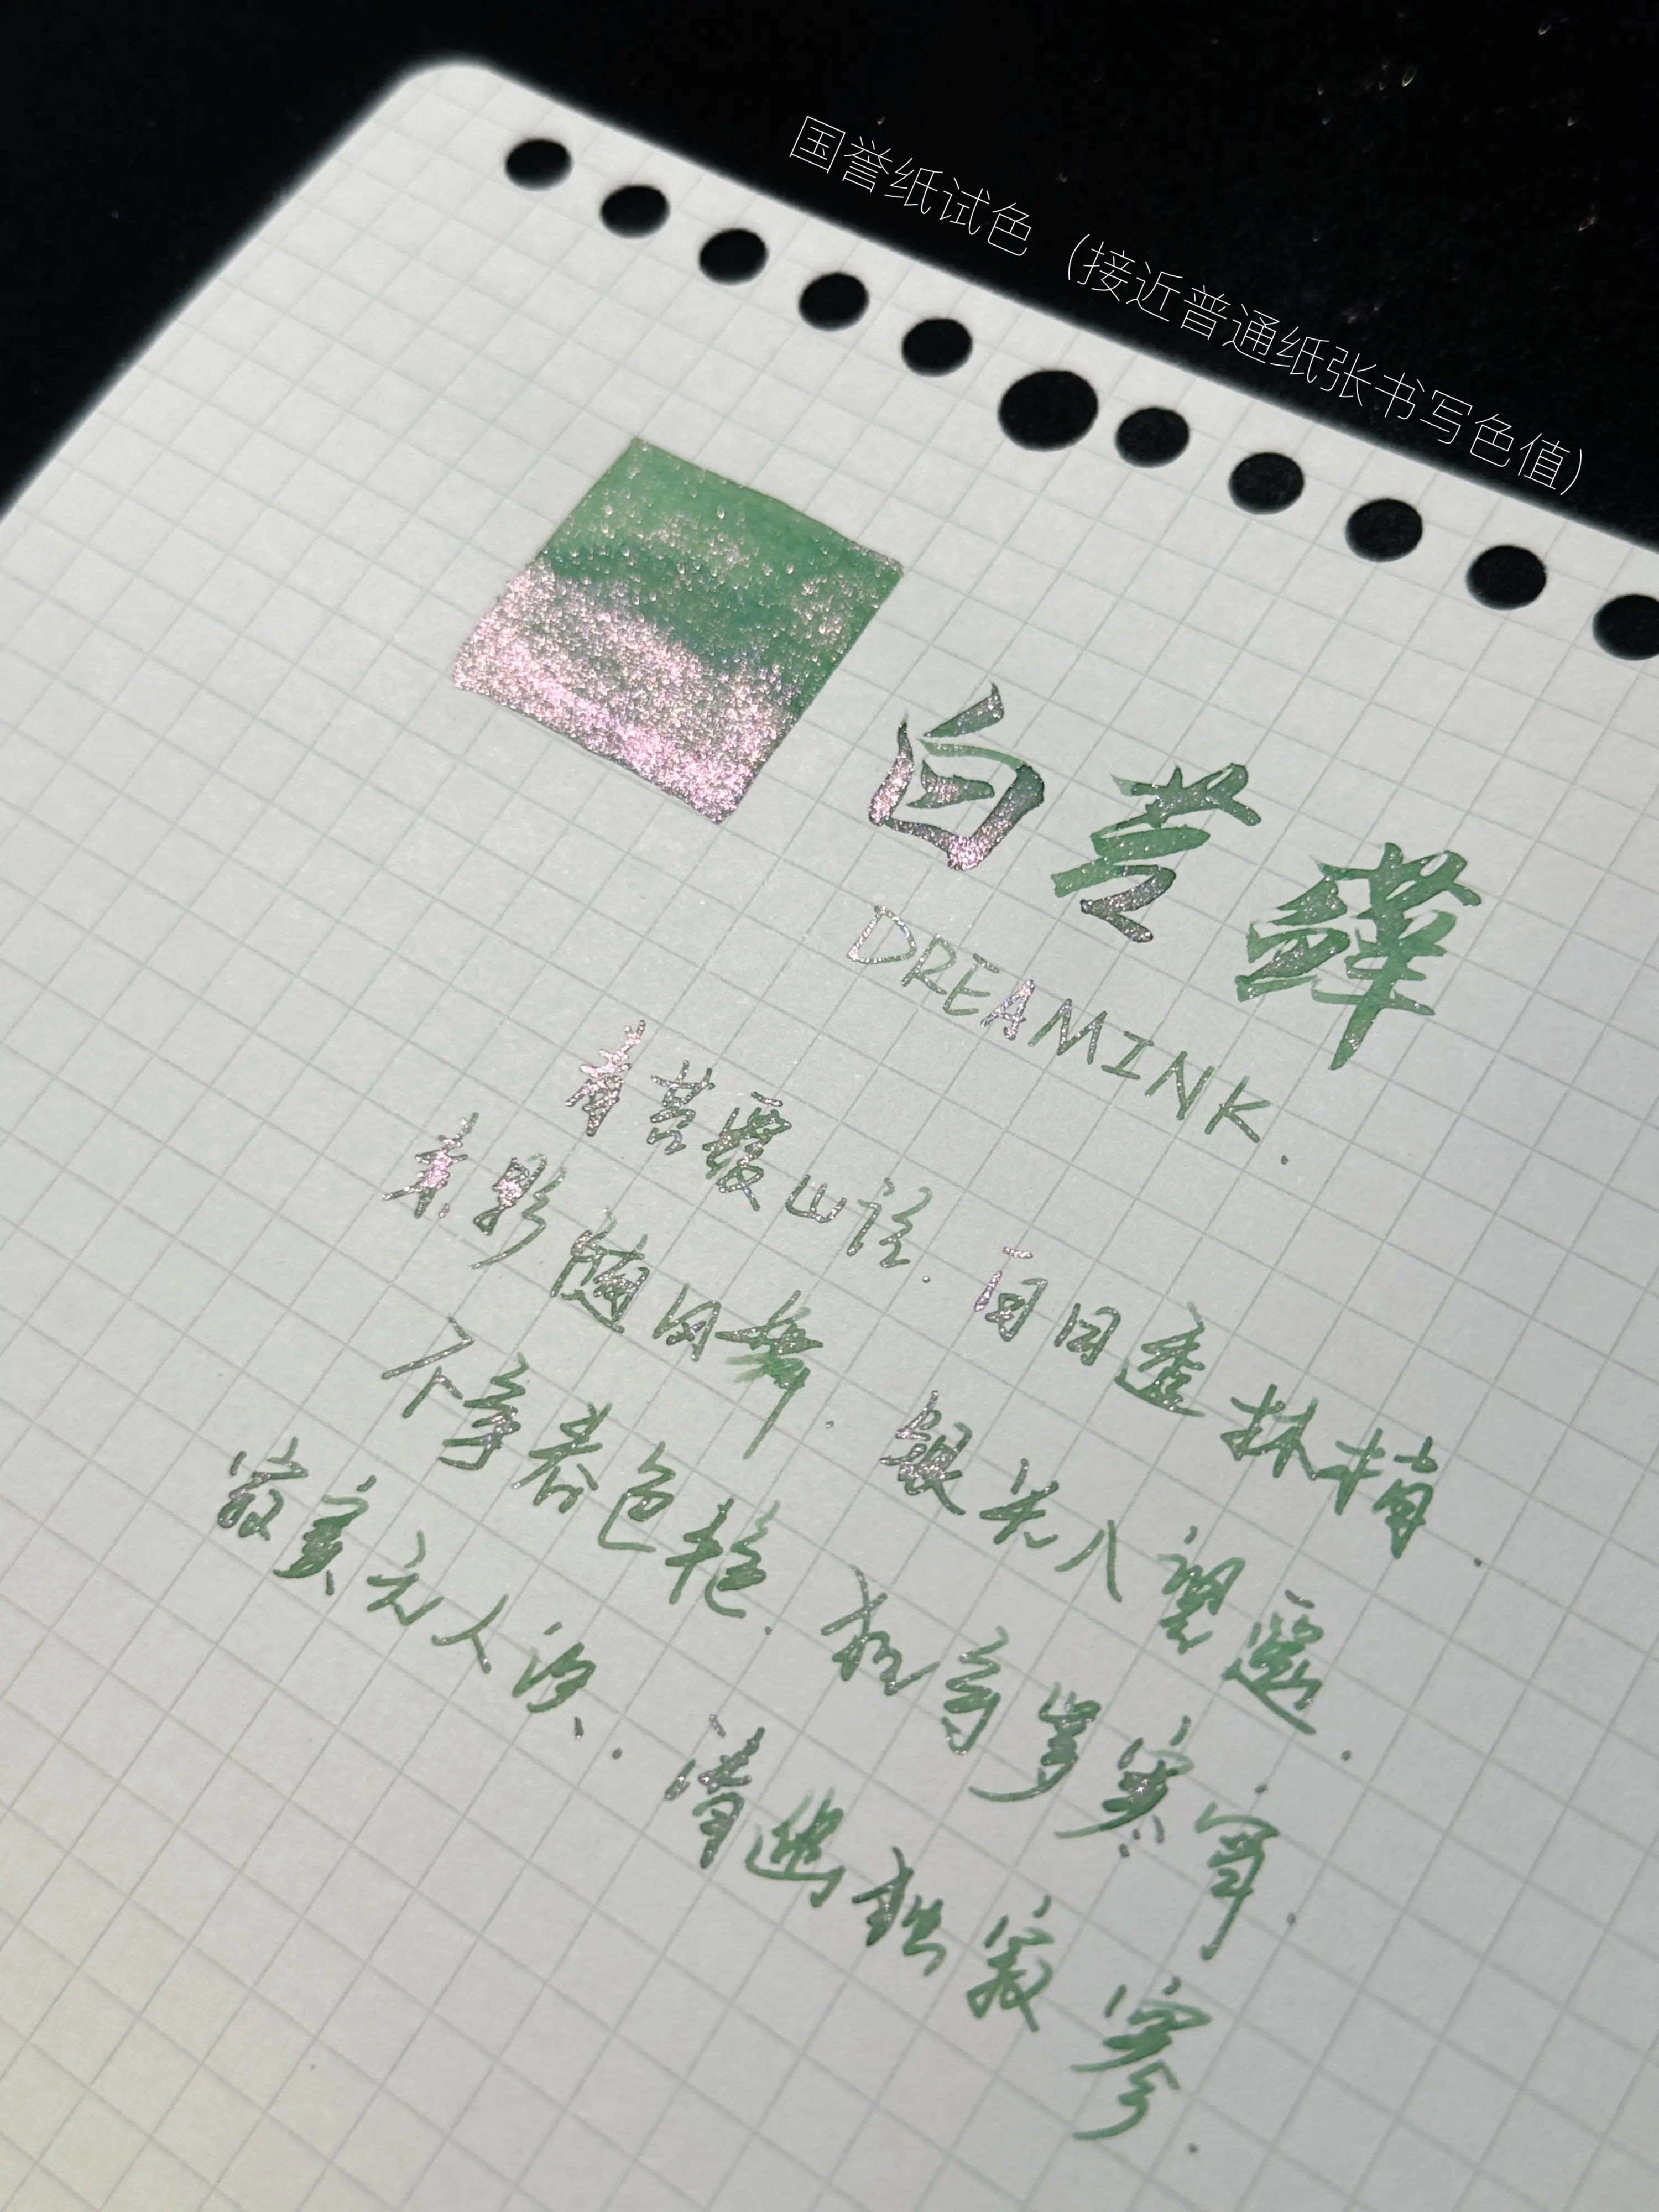 国誉纸试色（接近普通纸张书写色值）
白苔藓
DREAMINK.
青苔覆山径.白日透林梢.
素影随风舞.银光入望遥.
不争春色艳.犹有岁寒霄.
寂寞无人识.清幽独寂寥.